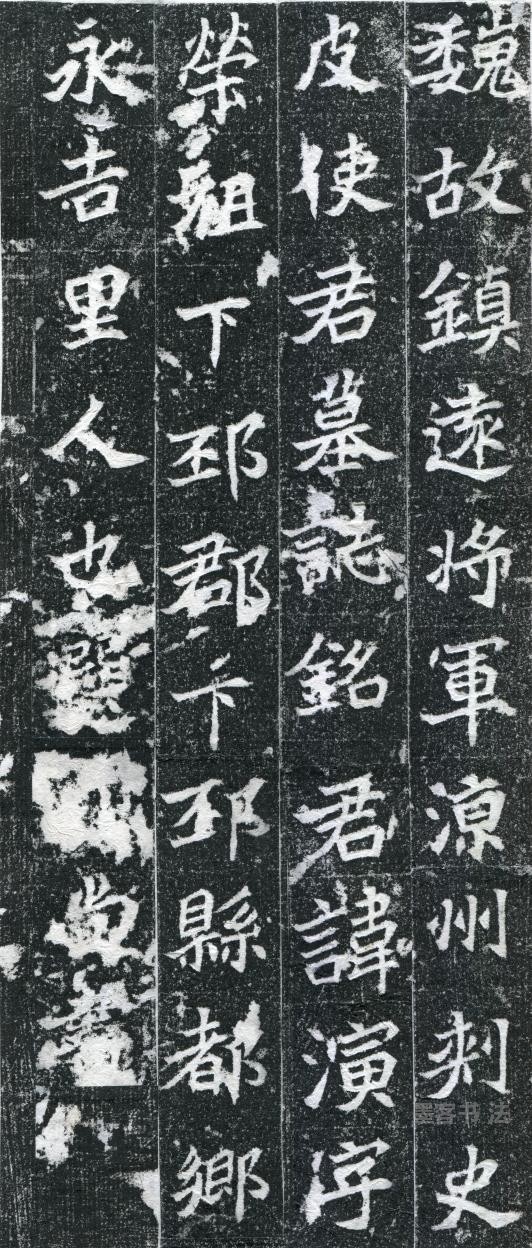 魏故鎮遠將軍涼州刺史
皮使君墓誌銘 君諱演字
榮祖下邳郡下邳縣都鄉
永吉里人也顯尚書
墨客书法